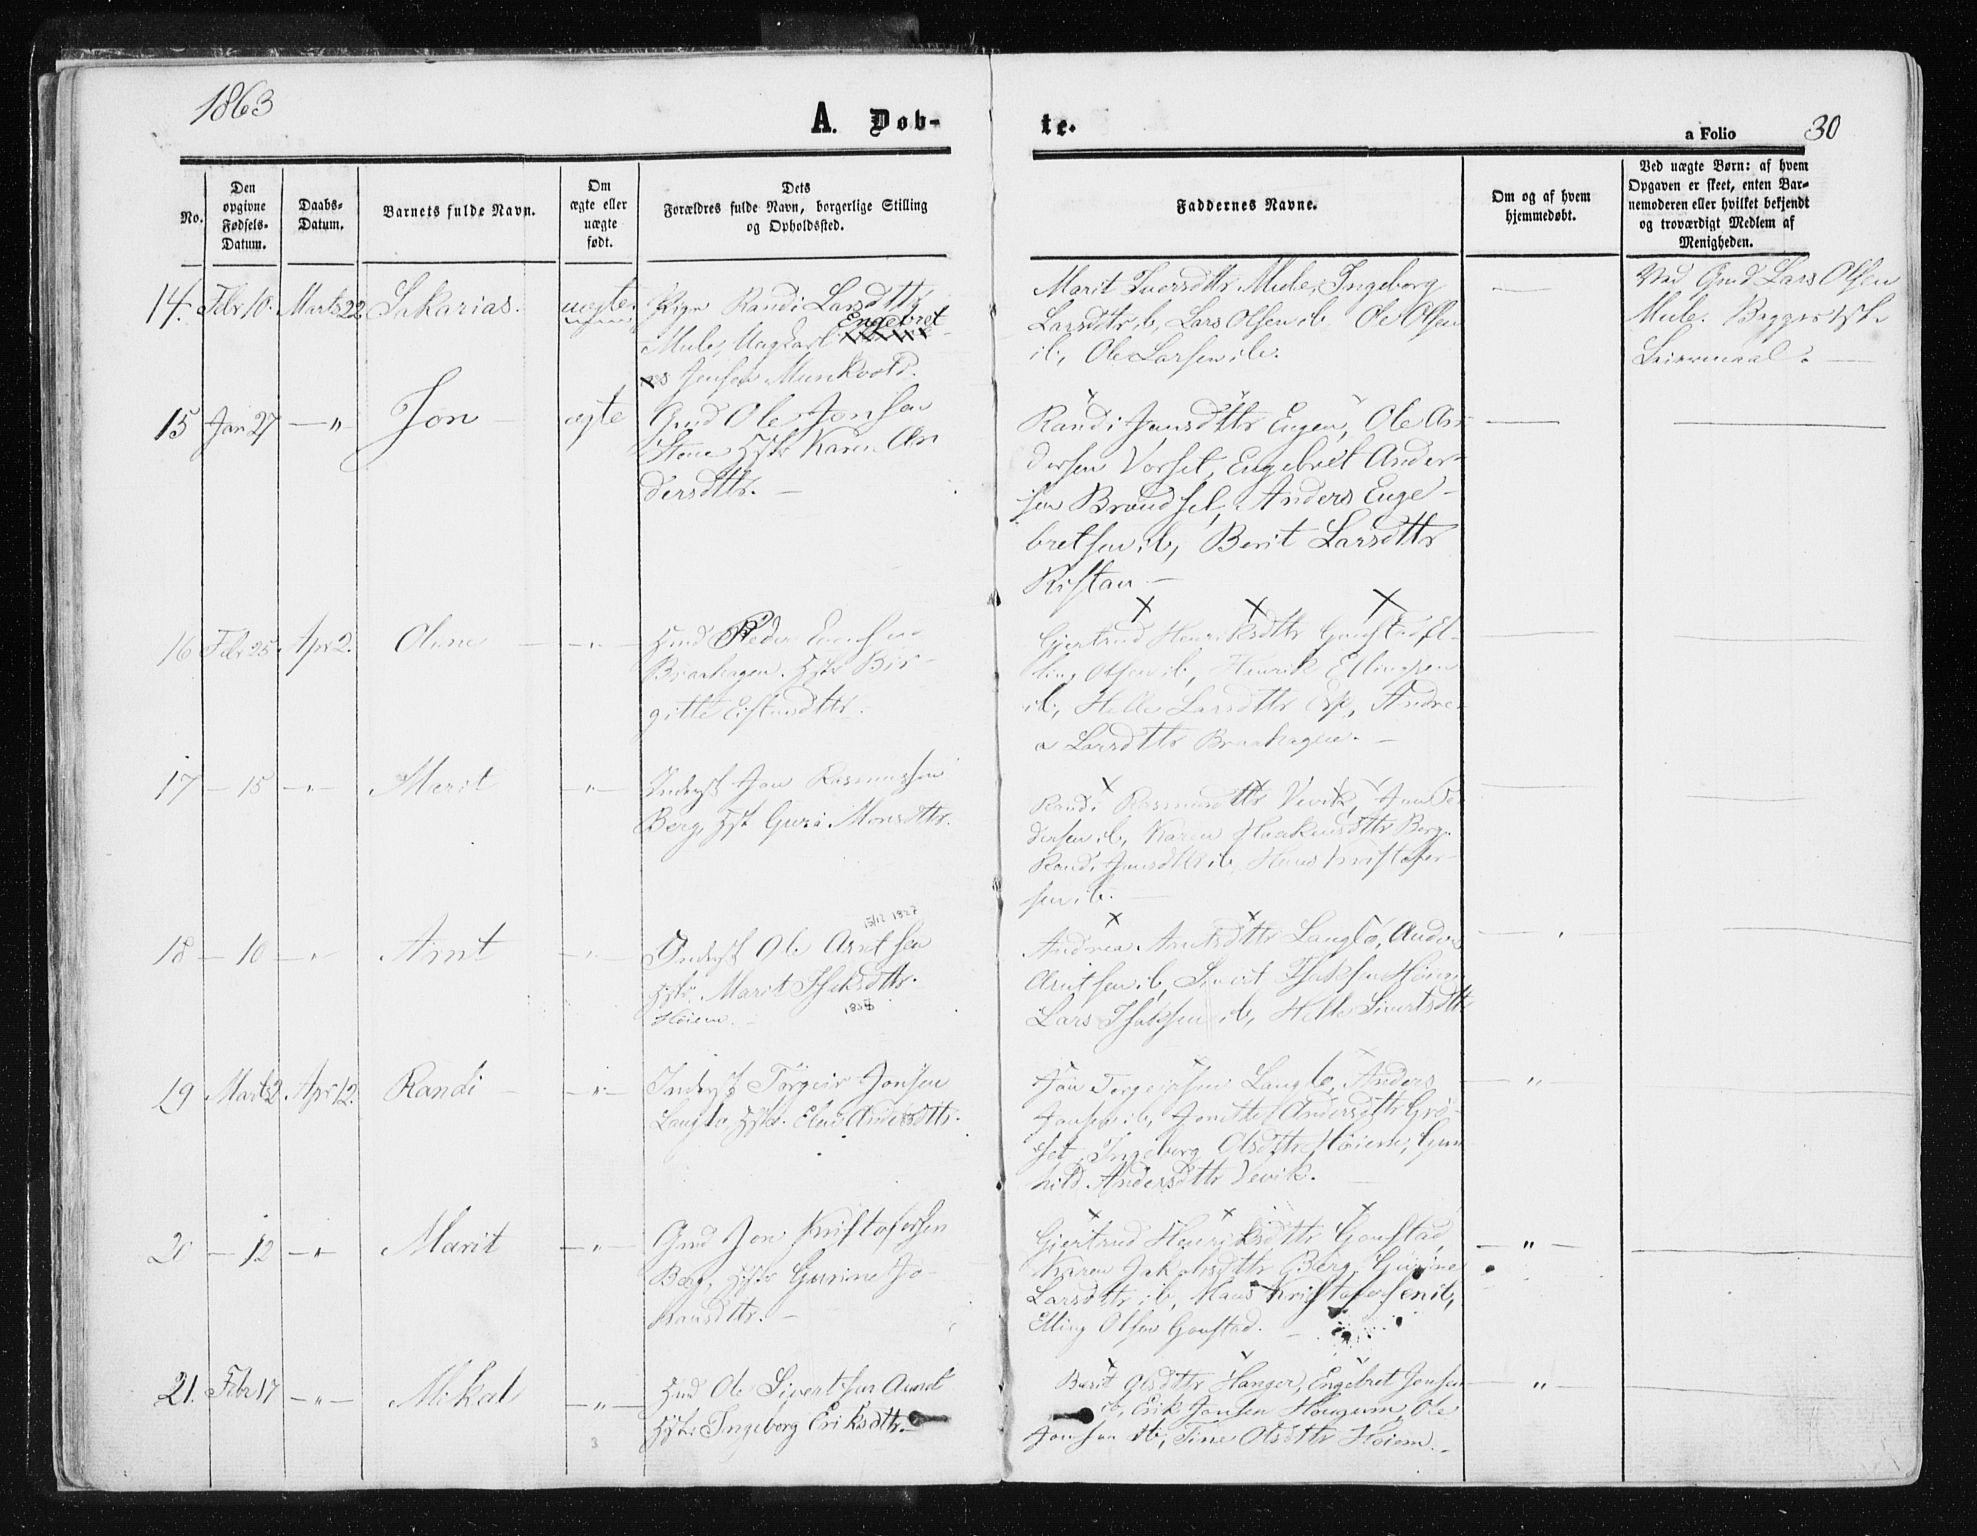 1863
A. Døb-
te.
a Folio 30
No.
Den opgivne Fødsels-Datum.
Daabs-Datum.
Barnets fulde Navn.
Om ægte eller uægte født.
Dets Forældres fulde Navn, borgerlige Stilling og Opholdssted.
Faddernes Navne.
Om og af hvem hjemmedøbt.
Ved uægte Børn: af hvem Opgaven er skeet, enten Barnemoderen eller hvilket bekjendt og troværdigt Medlem af Menigheden.
14. Febr 10. Marts 22 Sakarias. uægte. Pige Randi Larsdttr
Mule, Ungkarl Engebret
Jensen Munkvold.
Marit Iversdttr Mule, Ingeborg
Larsdttr ib, Lars Olsen ib. Ole Olsen
ib, Ole Larsen ib.
Ved Gmd Lars Olsen
Mule. Begges 1ste
Leiermaal.
15 Jan 27 — " Jon — ægte Gmd Ole Jonsen
Stene Hstr Karen An
dersdttr. —
Randi Jensdttr Engen, Ole An
dersen Vorset, Engebret Ander-
sen Brandset, Anders Enge-
bretsen ib, Berit Larsdttr
Ristan —
16 Febr 25 Apr 2. Oline — " — Hmd Peder
Braahagen. Hstr Bir-
gitte Eistensdttr.
Gjertrud Henriksdttr Gonstad, El-
ling Olsen ib, Henrik Ellingsen
ib, Helle Larsdttr Esp, Andre-
a Larsdttr Braahagen. —
17 — 15 — " — Marit — " — Inderst Jon Rasmussen
Berg, Hst Guru Monsdttr.
Randi Rasmusdttr Vevik, Jon Pe
dersen ib, Karen Haakensdttr Berg.
Randi Jonsdttr ib, Hans Kristofer-
sen ib. —
18 — 10 — " — Arnt — " — Inderst Ole Arntsen
15/12 1827
Hstr. Marit Isaksdttr.
Høiem. — 1838
Andrea Arntsdttr Langlo, Anders
Arntsen ib, Sivert Isaksen Høiem
Lars Isaksen ib, Helle Sivertsdttr
19 Marts 2 Apr 12. Randi — " — Inderst Torgeir Jonsen
Langlo, Hstr. Elen Andersdttr.
Jon Torgeirsen Langlo, Anders
Jonsen ib, Jonette Andersdttr Grø-
set, Ingeborg Olsdttr Høiem, Gun
hild Andersdttr Vevik.
20 — 12 — " Marit — " — Gmd Jon Kristofersen
Berg, Hstr Gurine Jo-
hansdttr. —
Gjertrud Henriksdttr Gonstad
Karen Jakobsdttr Berg, Gurine
Larsdttr ib, Hans Kristofersen ib,
Elling Olsen Gonstad. —
21. Febr 17 — " — Mikal — " — Hmd Ole Sivertsen Aunet
Hstr Ingeborg Eriksdttr.
Berit Olsdttr Hanger, Engebret Jonsen
ib, Erik Jonsen Hougum, Ole
Jonsen ib, Tine Olsdttr Høiem.